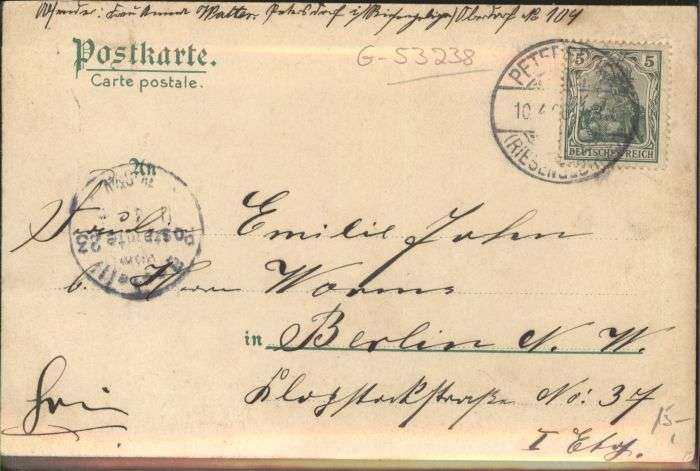 Absender: Frau Anna Walter Petersdorf i/Riesengebirge/Oberdorf No 104
Postkarte.
Carte postale.
G-53238
PETERSDORF
10.4
(RIESENGEB.)
5 5
DEUTSCHES REICH
An
Bestellt
Postamte 23
Fräulein Emilie John
b. Herrn Worms
in Berlin N. W.
Klopstockstraße No: 37
I Etg.
Frei
15-